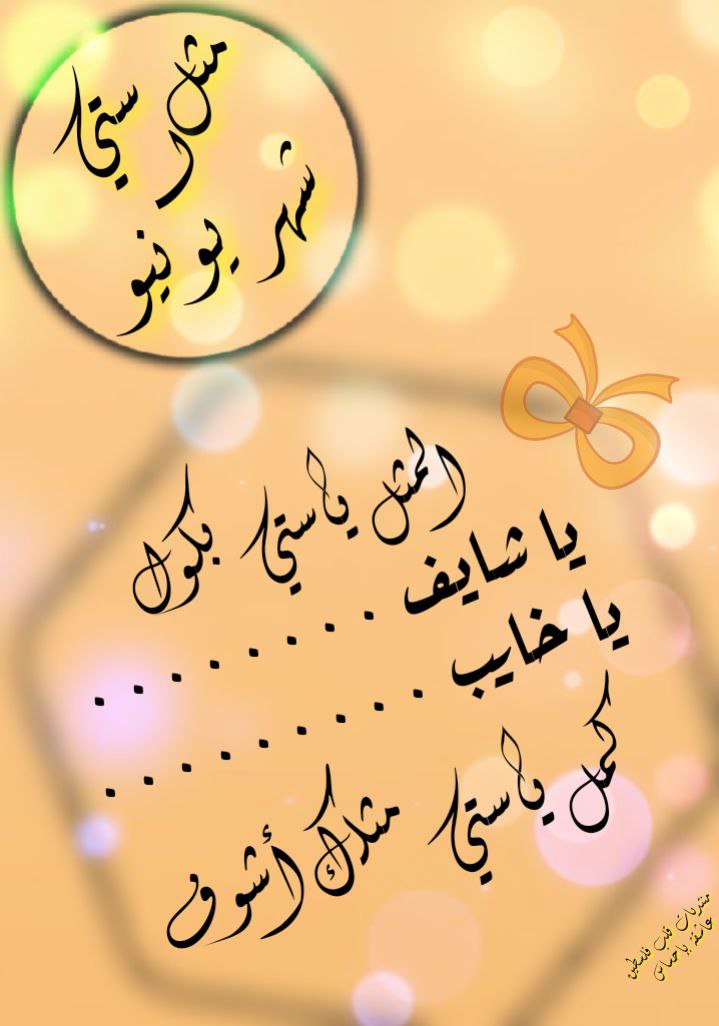 مثل ستي
شهر يونيو
المثل يا ستي بكول
يا شايف ........
يا خايب .........
كمل يا ستي مثلك أشوف
منتديات قلب فلسطين
عاشقة ياحماس